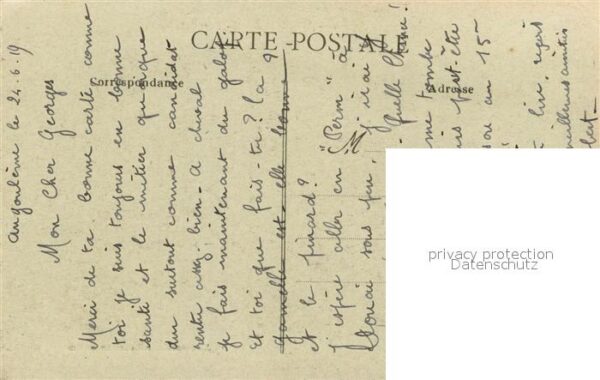 CARTE POSTALE
Correspondance
Adresse
Angoulême le 24.6.19
Mon Cher Georges
Merci de ta bonne carte comme
toi je suis toujours en bonne
santé et le métier quoique
dur surtout comme candidat
rentre assez bien. A cheval
je fais maintenant du galop
Et toi que fais-tu? La
gamelle est elle bonne
et le pinard?
J'espère aller en "Perm" à
Douai sous peu, j'irai
Quelle Chance!
me tombe
être
15
M
privacy protection
Datenschutz